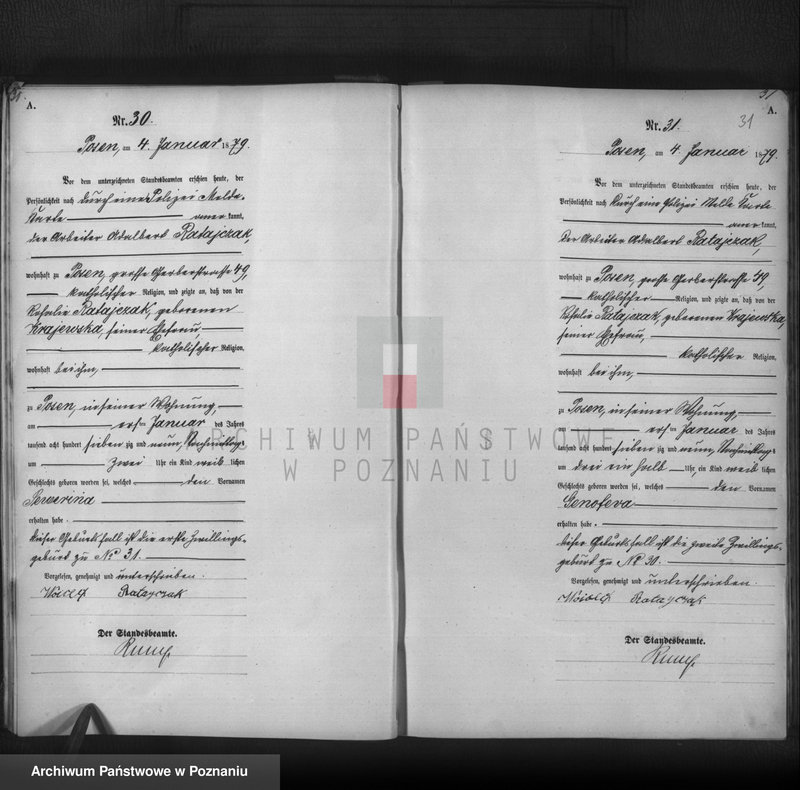 A.
Nr. 30.
Posen, am 4. Januar 1879.
Vor dem unterzeichneten Standesbeamten erschien heute, der
Persönlichkeit nach durch eine Polizei Melde
Karte aner kannt,
der Arbeiter Adalbert Ratajczak,
wohnhaft zu Posen, grosse Gerberstrasse 49,
katholischer Religion, und zeigte an, daß von der
Rosalie Ratajczak, geborenen
Krajewska, seiner Ehefrau,
katholischer Religion,
wohnhaft bei ihm,
zu Posen, in seiner Wohnung,
am ersten Januar des Jahres
tausend acht hundert sieben zig und neun, Vormittags
um zwei Uhr ein Kind weib lichen
Geschlechts geboren worden sei, welches den Vornamen
Severina
erhalten habe.
dieser Geburtsfall ist die erste Zwillings-
geburt zu No 31.
Vorgelesen, genehmigt und unterschrieben.
Ratayczak
Der Standesbeamte.
31
A.
Nr. 31.
31
Posen, am 4. Januar 1879.
Vor dem unterzeichneten Standesbeamten erschien heute, der
Persönlichkeit nach durch eine Polizei Melde Karte
aner kannt,
der Arbeiter Adalbert Ratajczak,
wohnhaft zu Posen, grosse Gerberstrasse 49,
katholischer Religion, und zeigte an, daß von der
Rosalie Ratajczak, geborenen Krajewska,
seiner Ehefrau,
katholischer Religion,
wohnhaft bei ihm,
zu Posen, in seiner Wohnung,
am ersten Januar des Jahres
tausend acht hundert sieben zig und neun, Vormittags
um drei ein halb Uhr, ein Kind weib lichen
Geschlechts geboren worden sei, welches den Vornamen
Genofeva
erhalten habe.
dieser Geburtsfall ist die zweite Zwillings-
geburt zu No 30.
Vorgelesen, genehmigt und unterschrieben.
Ratayczak
Der Standesbeamte.
ARCHIWUM PAŃSTWOWE
W POZNANIU
Archiwum Państwowe w Poznaniu